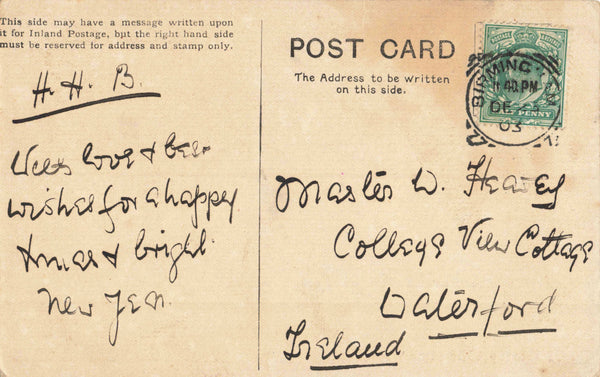 This side may have a message written upon
it for Inland Postage, but the right hand side
must be reserved for address and stamp only.
H. H. B.
With love & best
wishes for a happy
Xmas & bright
New Year.
POST CARD
The Address to be written
on this side.
BIRMINGHAM
40 PM
DE
03
PENNY
Master W.
College View Cottage
Waterford
Ireland